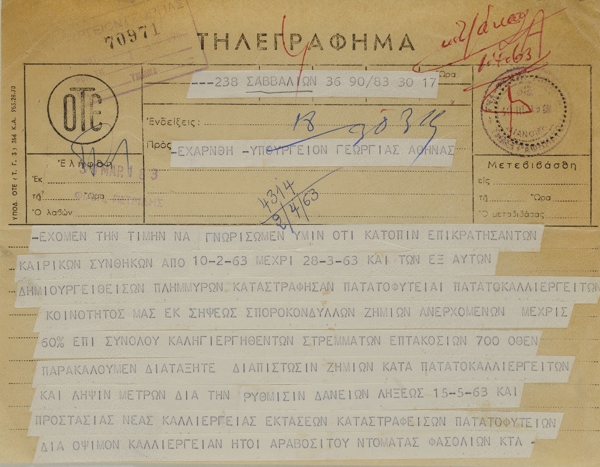 70971
ΤΗΛΕΓΡΑΦΗΜΑ
1-4-63
---238 ΣΑΒΒΑΛΙΩΝ 36 90/83 30 17
Ώρα
ΟΤΕ
Ἐνδείξεις:
18
Πρός
-ΕΧΑΡΝΘΗ -ΥΠΟΥΡΓΕΙΟΝ ΓΕΩΡΓΙΑΣ ΑΘΗΝΑΣ
Ἐλήφθη
Ἐκ
τῇ Ὥρα
Ὁ λαβών
MAR
4314
2/4/63
Μετεδιβάσθη
εἰς
τῇ Ὥρα
Ὁ μεταδιβάσας
ΥΠΟΔ. ΟΤΕ
-ΕΧΟΜΕΝ ΤΗΝ ΤΙΜΗΝ ΝΑ ΓΝΩΡΙΣΩΜΕΝ ΥΜΙΝ ΟΤΙ ΚΑΤΟΠΙΝ ΕΠΙΚΡΑΤΗΣΑΝΤΩΝ
ΚΑΙΡΙΚΩΝ ΣΥΝΘΗΚΩΝ ΑΠΟ 10-2-63 ΜΕΧΡΙ 28-3-63 ΚΑΙ ΤΩΝ ΕΞ ΑΥΤΩΝ
ΔΗΜΙΟΥΡΓΕΙΘΕΙΣΩΝ ΠΛΗΜΜΥΡΩΝ ΚΑΤΑΣΤΡΑΦΗΣΑΝ ΠΑΤΑΤΟΦΥΤΕΙΑΙ ΠΑΤΑΤΟΚΑΛΛΙΕΡΓΕΙΤΩΝ
ΚΟΙΝΟΤΗΤΟΣ ΜΑΣ ΕΚ ΣΗΨΕΩΣ ΣΠΟΡΟΚΟΝΔΥΛΛΩΝ ΖΗΜΙΩΝ ΑΝΕΡΧΟΜΕΝΩΝ ΜΕΧΡΙΣ
60% ΕΠΙ ΣΥΝΟΛΟΥ ΚΑΛΗΓΙΕΡΓΗΘΕΝΤΩΝ ΣΤΡΕΜΜΑΤΩΝ ΕΠΤΑΚΟΣΙΩΝ 700 ΟΘΕΝ
ΠΑΡΑΚΑΛΟΥΜΕΝ ΔΙΑΤΑΞΗΤΕ ΔΙΑΠΙΣΤΩΣΙΝ ΖΗΜΙΩΝ ΚΑΤΑ ΠΑΤΑΤΟΚΑΛΛΙΕΡΓΕΙΤΩΝ
ΚΑΙ ΛΗΨΙΝ ΜΕΤΡΩΝ ΔΙΑ ΤΗΝ ΡΥΘΜΙΣΙΝ ΔΑΝΕΙΩΝ ΛΗΞΕΩΣ 15-5-63 ΚΑΙ
ΠΡΟΣΤΑΣΙΑΣ ΝΕΑΣ ΚΑΛΛΙΕΡΓΕΙΑΣ ΕΚΤΑΣΕΩΝ ΚΑΤΑΣΤΡΑΦΕΙΣΩΝ ΠΑΤΑΤΟΦΥΤΕΙΩΝ
ΔΙΑ ΟΨΙΜΟΝ ΚΑΛΛΙΕΡΓΕΙΑΝ ΗΤΟΙ ΑΡΑΒΟΣΙΤΟΥ ΝΤΟΜΑΤΑΣ ΦΑΣΟΛΙΩΝ ΚΤΛ -